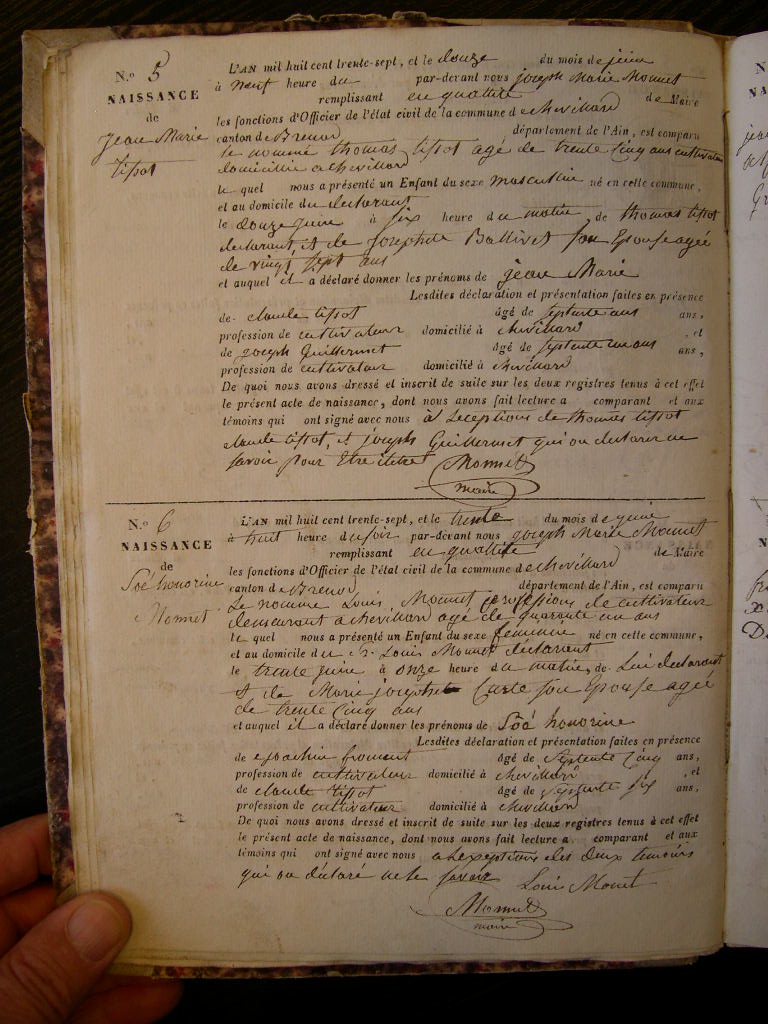 N.º 5
NAISSANCE
de
Jean Marie
tissot
L'AN mil huit cent trente-sept, et le douze du mois de juin
à neuf heure du par-devant nous joseph Marie Monnet
remplissant en qualité de Maire
les fonctions d'Officier de l'état civil de la commune de chevillard
canton de Brenod département de l'Ain, est comparu
le nommé thomas tissot agé de trente cinq ans cultivateur
domicilié a chevillard
le quel nous a présenté un Enfant du sexe masculin né en cette commune,
et au domicile du declarant
le douze juin à six heure du matin, de thomas tissot
declarant, et de Josephte Ballivet son Epouse agée
de vingt sept ans
et auquel il a déclaré donner les prénoms de jean Marie
Lesdites déclaration et présentation faites en présence
de claude tissot âgé de septente ans ans,
profession de cultivateur domicilié à chevillard , et
de joseph Guillermet âgé de septente un ans ans,
profession de cultivateur domicilié à chevillard
De quoi nous avons dressé et inscrit de suite sur les deux registres tenus à cet effet
le présent acte de naissance, dont nous avons fait lecture a comparant et aux
témoins qui ont signé avec nous à Lexceptions de thomas tissot
claude tissot, et joseph Guillermet qui on declarer ne
savoir pour Etre iletré Monnet
maire
N.º 6
NAISSANCE
de
Soé honorine
Monnet
L'AN mil huit cent trente-sept, et le trente du mois de juin
à huit heure du soir par-devant nous joseph Marie Monnet
remplissant en qualité de Maire
les fonctions d'Officier de l'état civil de la commune de chevillard
canton de Brenod département de l'Ain, est comparu
Le nommé Louis Monnet professions de cultivateur
demeurant a chevillard agé de quarante un ans
le quel nous a présenté un Enfant du sexe féminin né en cette commune,
et au domicile du Louis Monnet déclarant
le trente juin à onze heure du matin, de Lui declarant
et de Marie josephte Carte son Epouse agée
de trente cinq ans
et auquel il a déclaré donner les prénoms de Soé honorine
Lesdites déclaration et présentation faites en présence
de joachim froment âgé de septente cinq ans,
profession de cultivateur domicilié à chevillard , et
de claude tissot âgé de septente six ans,
profession de cultivateur domicilié à chevillard
De quoi nous avons dressé et inscrit de suite sur les deux registres tenus à cet effet
le présent acte de naissance, dont nous avons fait lecture a comparant et aux
témoins qui ont signé avec nous a Lexceptions des deux temoins
qui on déclaré ne le savoir Louis Monet
Monnet
maire